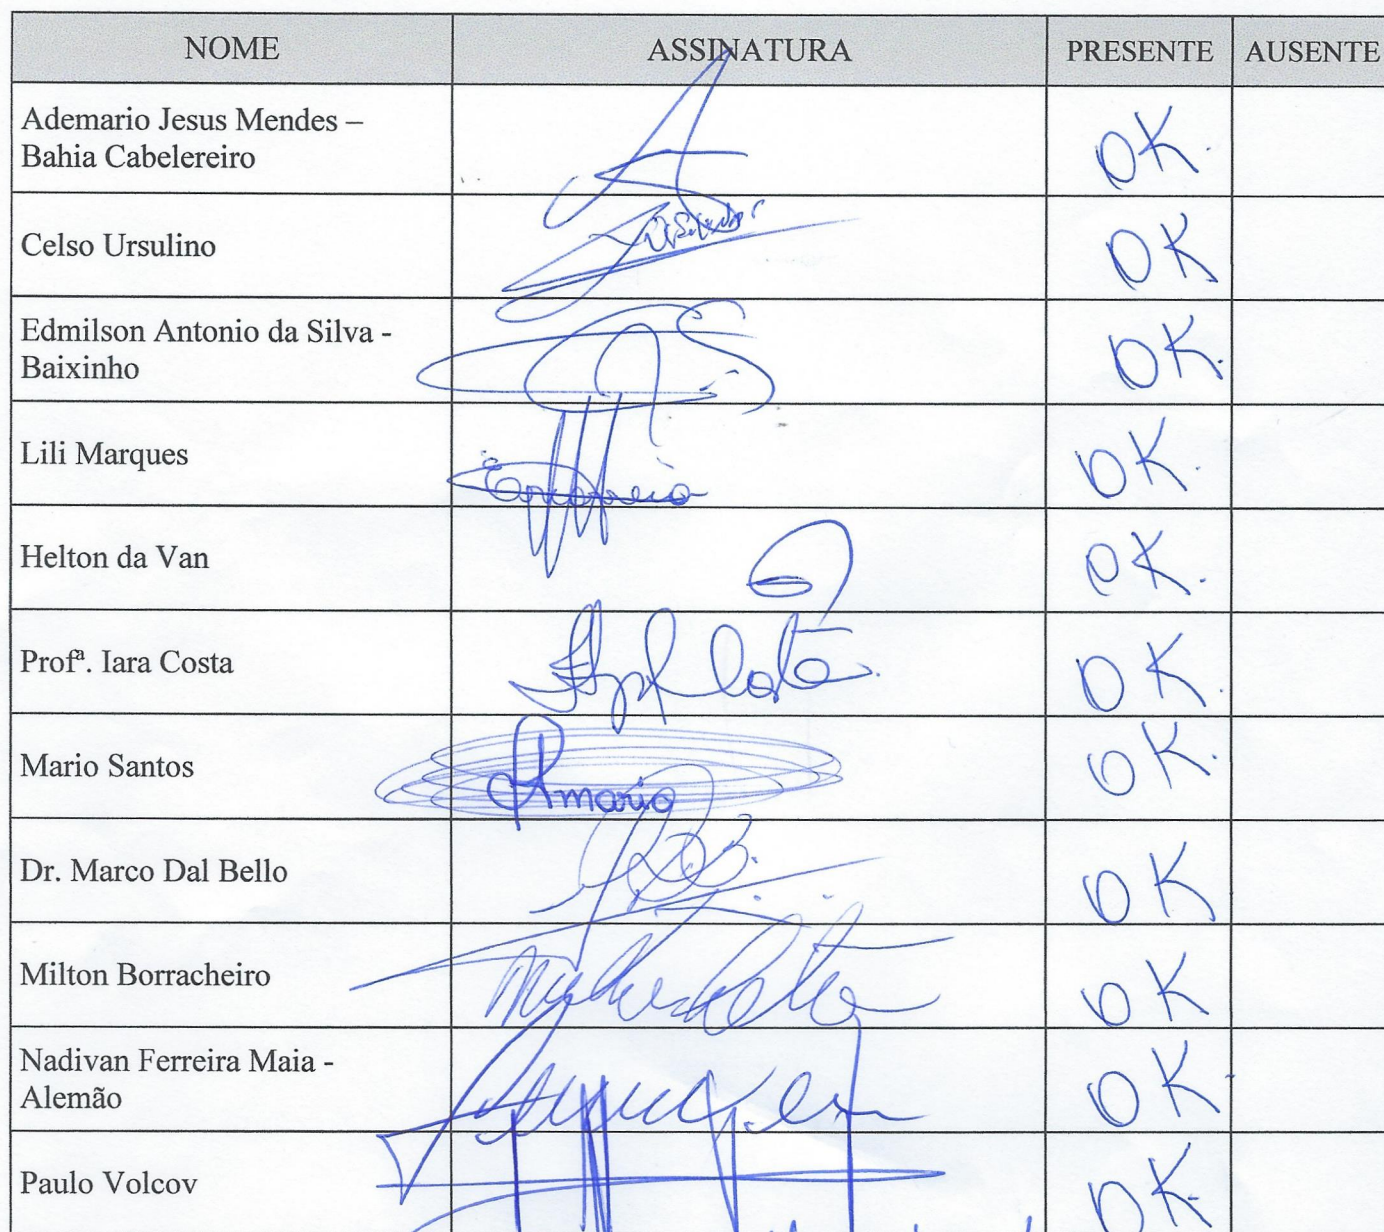 NOME ASSINATURA PRESENTE AUSENTE
Ademario Jesus Mendes –
Bahia Cabelereiro OK.
Celso Ursulino OK
Edmilson Antonio da Silva -
Baixinho OK.
Lili Marques OK.
Helton da Van OK.
Profª. Iara Costa Costa OK.
Mario Santos Amario OK.
Dr. Marco Dal Bello OK
Milton Borracheiro OK
Nadivan Ferreira Maia -
Alemão OK
Paulo Volcov OK.